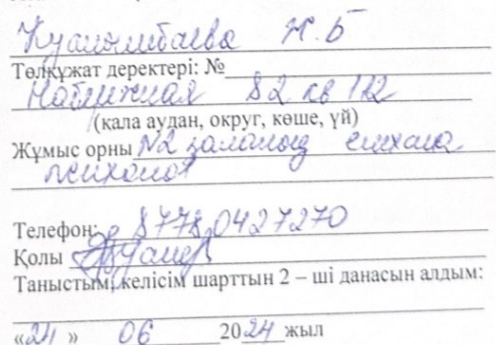 Куанышбаева Н.Б
Төлқұжат деректері: №
Набережная 82 кв 112
(қала аудан, округ, көше, үй)
Жұмыс орны №2 қалалық емхана
психолог
Телефон: 87780427270
Қолы
Таныстым, келісім шарттын 2 – ші данасын алдым:
«24» 06 2024 жыл